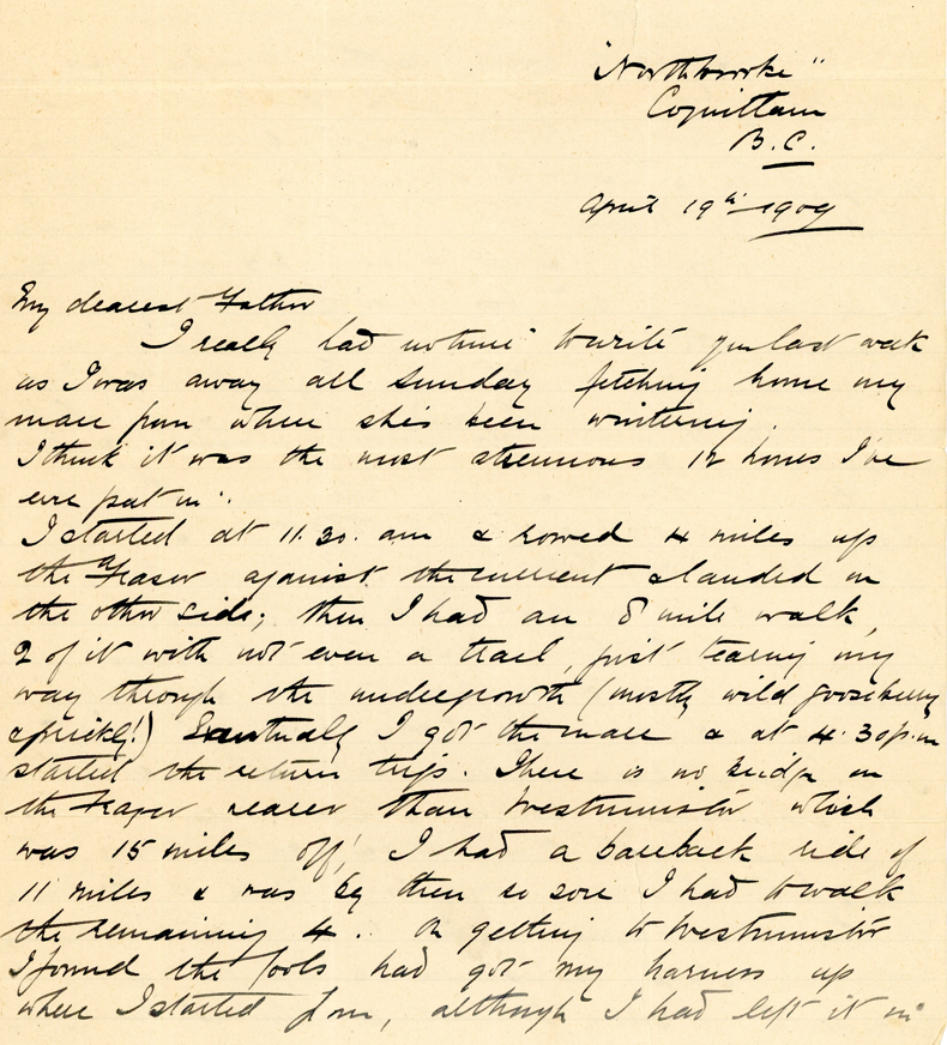 "Northbrooke"
Coquitlam
B.C.
April 19th 1909
My dearest Father
I really had no time to write you last week
as I was away all Sunday fetching home my
mare from where she's been wintering.
I think it was the most strenuous 12 hours I've
ever put in.
I started at 11.30. am & rowed 4 miles up
the Fraser against the current & landed on
the other side; then I had an 8 mile walk,
2 of it with not even a trail, just tearing my
way through the undergrowth (mostly wild gooseberry
& prickly!) Eventually I got the mare & at 4.30 p.m
started the return trip. There is no bridge on
the Fraser nearer than Westminster which
was 15 miles off; I had a bareback ride of
11 miles & was by then so sore I had to walk
the remaining 4.. On getting to Westminster
I found the fools had got my harness up
where I started from, although I had left it in